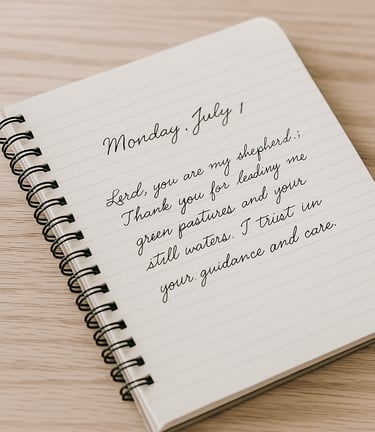 Monday. July 1
Lerd, you are my shepherd.;
Thank you for leading me
green pastures and your
still waters. I trist iın
your guidance and care.